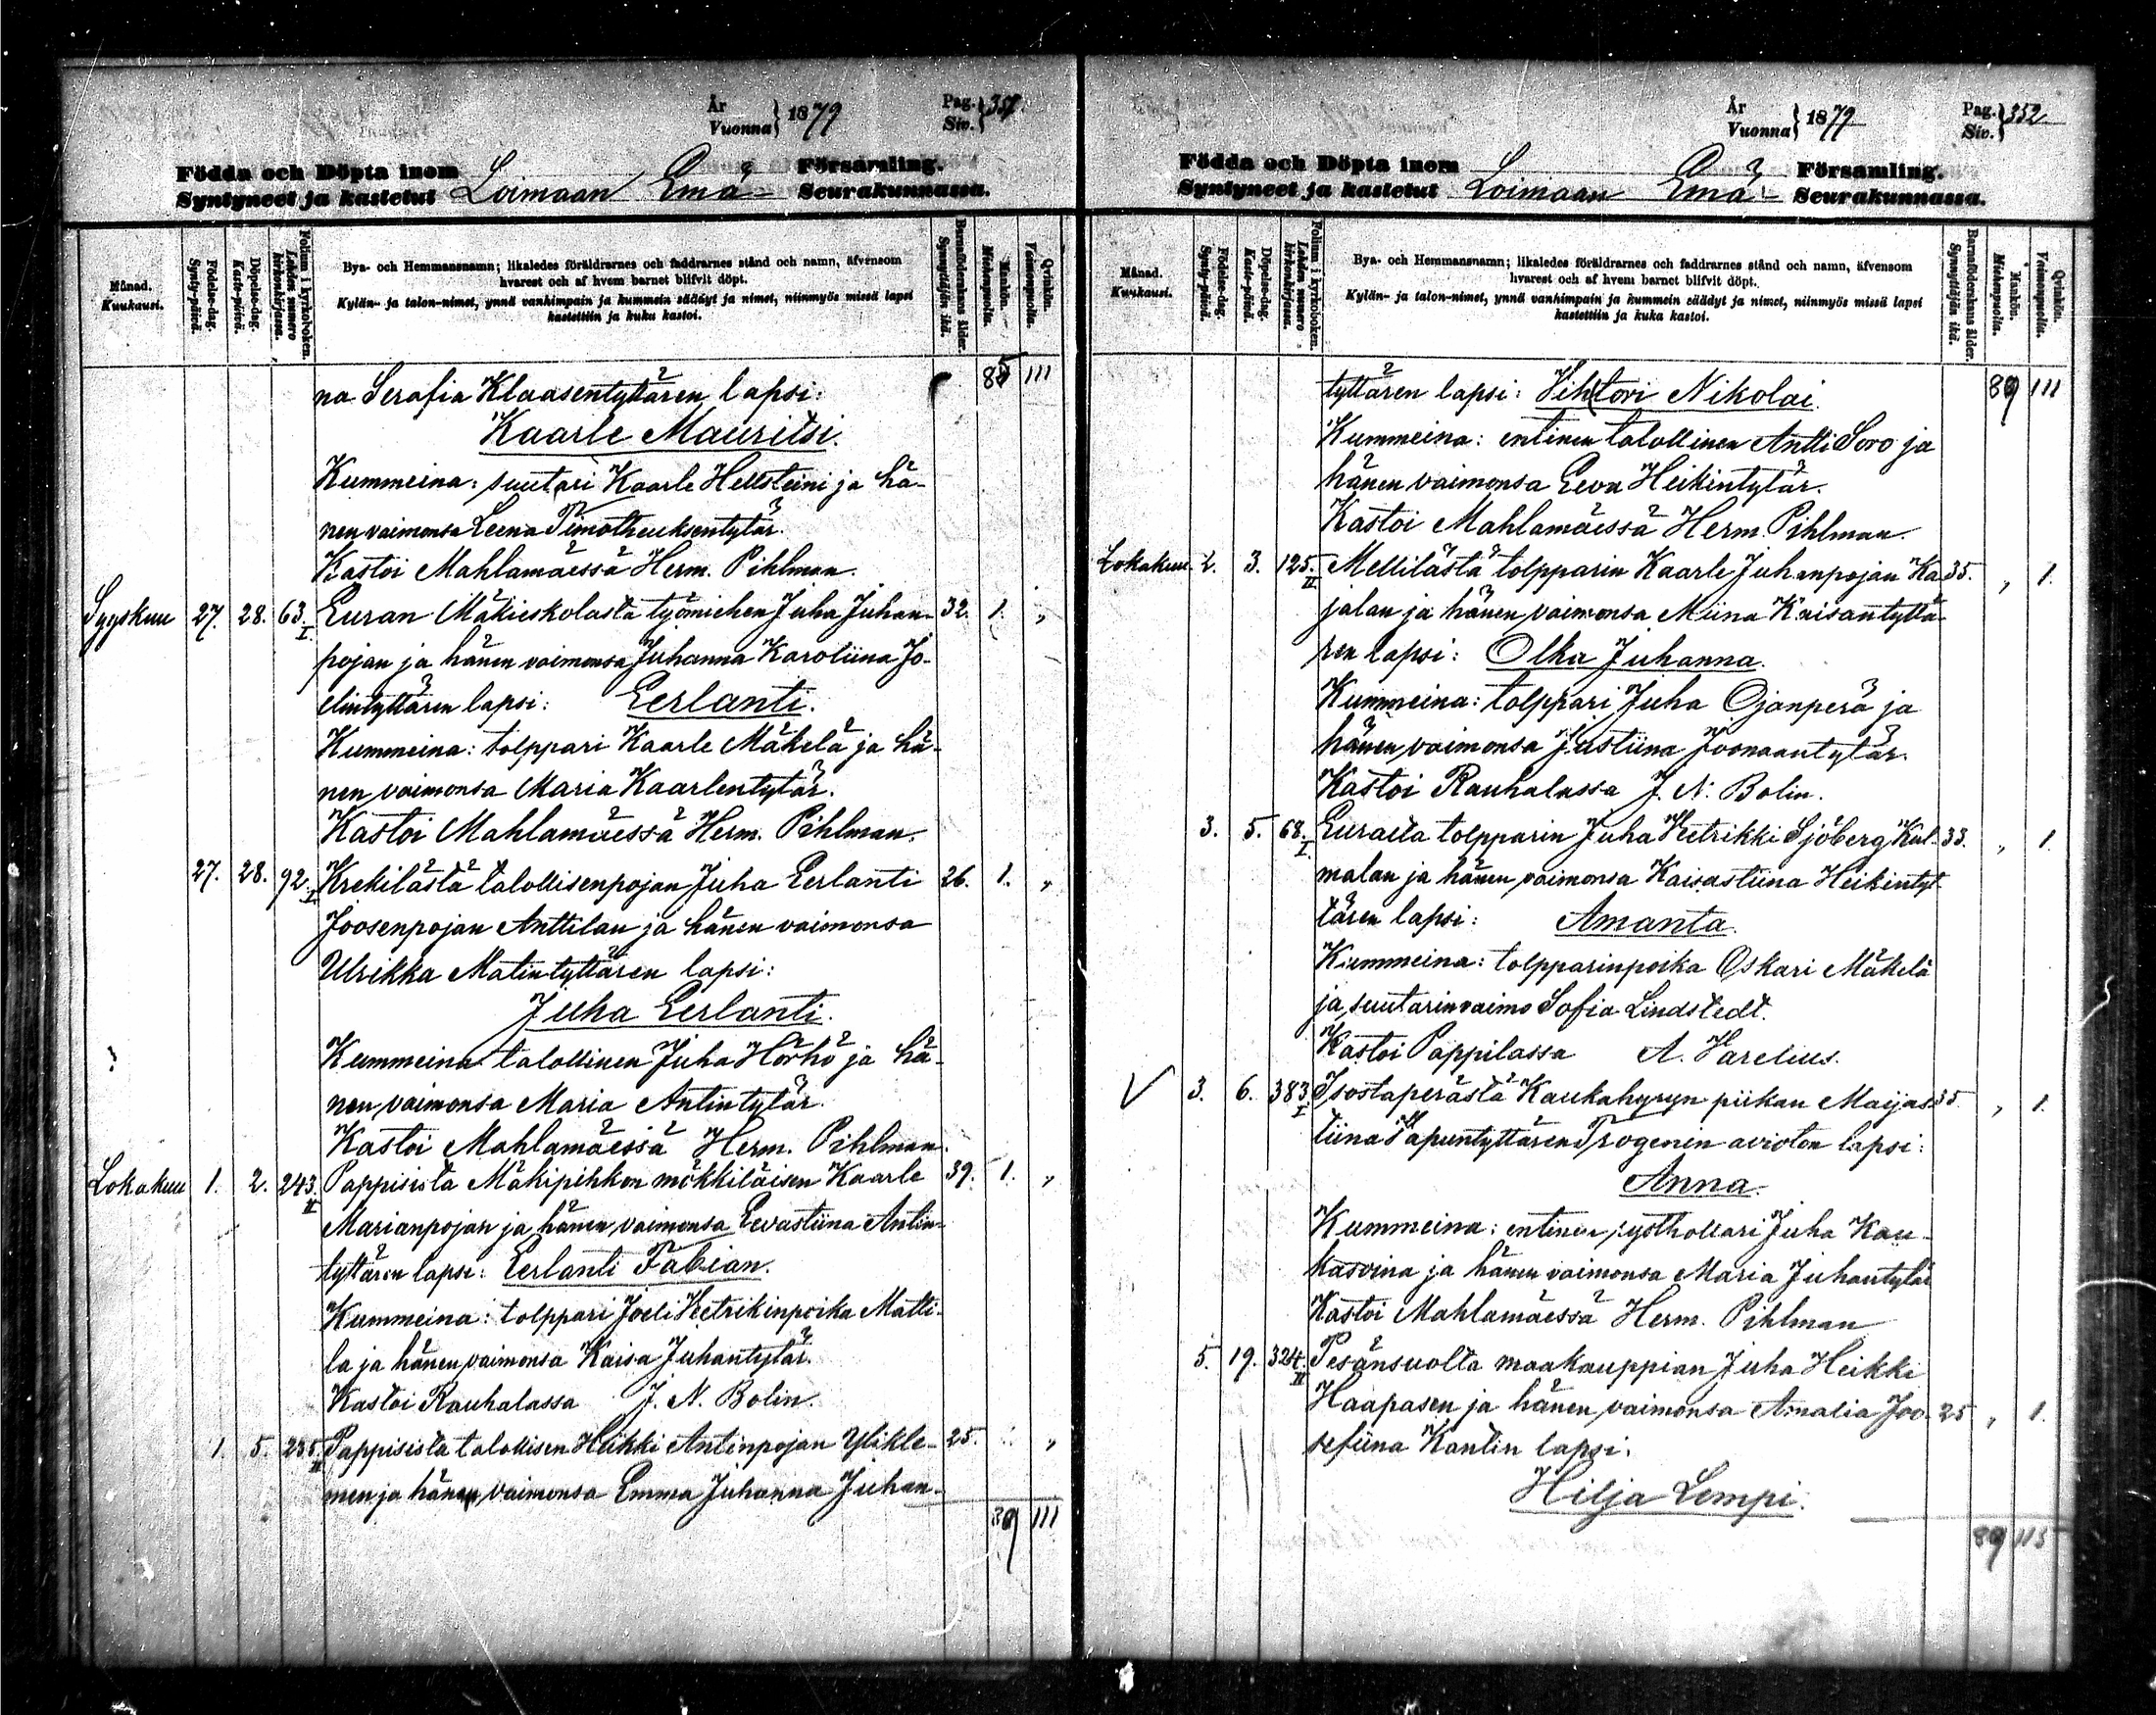 År
Vuonna } 1879
Pag.
Siv. } 351
Födda och Döpta inom
Syntyneet ja kastetut Loimaan Emä- Församling.
Seurakunnassa.
Månad.
Kuukausi.
Födelse-dag.
Synty-päivä.
Döpelse-dag.
Kaste-päivä.
Folium i kyrkoboken.
Lehden numero kirkonkirjassa.
Bya- och Hemmansnamn; likaledes föräldrarnes och faddrarnes stånd och namn, äfvensom
hvarest och af hvem barnet blifvit döpt.
Kylän- ja talon-nimet, ynnä vanhimpain ja kummein säädyt ja nimet, niinmyös missä lapsi
kastettiin ja kuka kastoi.
Barnaföderskans ålder.
Synnyttäjän ikä.
Mankön.
Miehenpuolia.
Qvinkön.
Vaimonpuolia.
85 111
na Serafia Klaasentyttären lapsi:
Kaarle Mauritsi.
Kummeina: suutari Kaarle Hellsteini ja hä-
nen vaimonsa Leena Timotheuksentytär.
Kastoi Mahlamäessä Herm. Pihlman.
Syyskuu 27. 28. 63. I Euran Mäkieskolasta työmiehen Juha Juhan- 32. 1. „
pojan ja hänen vaimonsa Juhanna Karoliina Jo-
elintyttären lapsi: Eerlanti.
Kummeina: tolppari Kaarle Mäkelä ja hä-
nen vaimonsa Maria Kaarlentytär.
Kastoi Mahlamäessä Herm. Pihlman.
27. 28. 92. I Krekilästä talollisenpojan Juha Eerlanti 26. 1. „
Joosenpojan Anttilan ja hänen vaimonsa
Ulrikka Matintyttären lapsi:
Juha Eerlanti.
Kummeina: talollinen Juha Hörhö ja hä-
nen vaimonsa Maria Antintytär.
Kastoi Mahlamäessä Herm. Pihlman.
Lokakuu 1. 2. 243. II Pappisista Mäkipihkon mökkiläisen Kaarle 39. 1. „
Marianpojan ja hänen vaimonsa Eevastiina Antin-
tyttären lapsi: Eerlanti Fabian.
Kummeina: tolppari Joeli Heetrikinpoika Matti-
la ja hänen vaimonsa Kaisa Juhantytär.
Kastoi Rauhalassa J. N. Bolin.
1. 5. 235. II Pappisista talollisen Heikki Antinpojan Ylikle- 25. „
men ja hänen vaimonsa Emma Juhanna Juhan-
89 111
År
Vuonna } 1879
Pag.
Siv. } 352
Födda och Döpta inom
Syntyneet ja kastetut Loimaan Emä- Församling.
Seurakunnassa.
Månad.
Kuukausi.
Födelse-dag.
Synty-päivä.
Döpelse-dag.
Kaste-päivä.
Folium i kyrkoboken.
Lehden numero kirkonkirjassa.
Bya- och Hemmansnamn; likaledes föräldrarnes och faddrarnes stånd och namn, äfvensom
hvarest och af hvem barnet blifvit döpt.
Kylän- ja talon-nimet, ynnä vanhimpain ja kummein säädyt ja nimet, niinmyös missä lapsi
kastettiin ja kuka kastoi.
Barnaföderskans ålder.
Synnyttäjän ikä.
Mankön.
Miehenpuolia.
Qvinkön.
Vaimonpuolia.
89 111
tyttären lapsi: Vihtori Nikolai.
Kummeina: entinen talollinen Antti Soro ja
hänen vaimonsa Eeva Heikintytär.
Kastoi Mahlamäessä Herm. Pihlman.
Lokakuu 2. 3. 125. II Mellilästä tolpparin Kaarle Juhanpojan Ka- 35. „ 1.
jalan ja hänen vaimonsa Miina Kaisantyttä-
ren lapsi: Olka Juhanna.
Kummeina: tolppari Juha Ojanperä ja
hänen vaimonsa Justiina Joonaantytär.
Kastoi Rauhalassa J. N. Bolin.
3. 5. 68. I Eurasta tolpparin Juha Heetrikki Sjöberg Kul- 33. „ 1.
malan ja hänen vaimonsa Kaisastiina Heikintyt-
tären lapsi: Amanta.
Kummeina: tolpparinpoika Oskari Mäkelä
ja suutarinvaimo Sofia Lindstedt.
Kastoi Pappilassa A. Harelius.
3. 6. 383. I Isostaperästä Kaukahyryn piikan Maijas- 35 „ 1.
tiina Tapuntyttären Trogenin avioton lapsi:
Anna.
Kummeina: entinen rysthollari Juha Kau-
kasoina ja hänen vaimonsa Maria Juhantytär
Kastoi Mahlamäessä Herm. Pihlman
5. 19. 324. II Pesänsuolta maakauppian Juha Heikki
Haapasen ja hänen vaimonsa Amalia Joo- 25 „ 1.
sefiina Kantin lapsi:
Hilja Lempi.
89 115